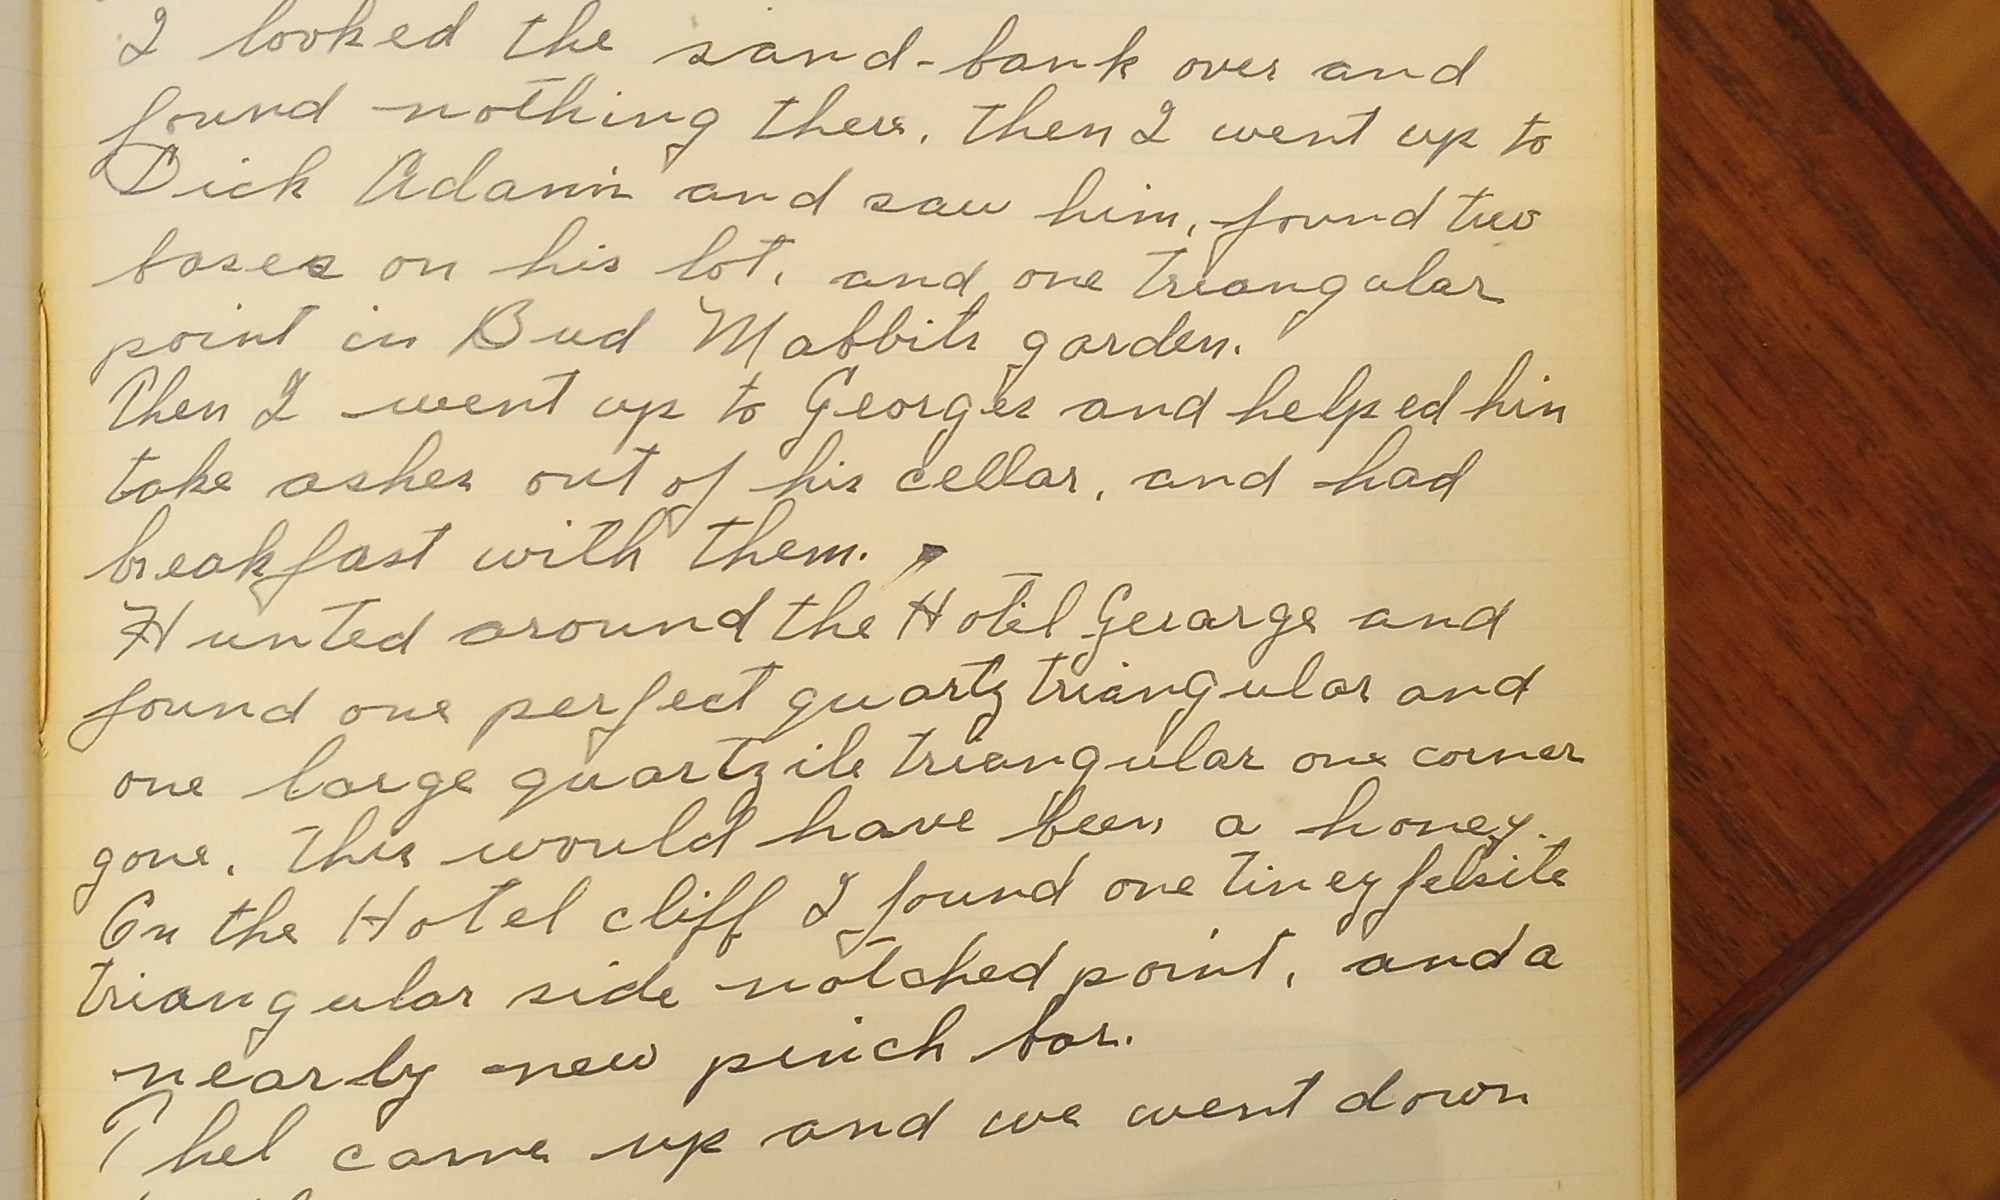 I looked the sand-bank over and
found nothing there. Then I went up to
Dick Adams and saw him, found two
bases on his lot, and one triangular
point in Bud Mabbits garden.
Then I went up to Georges and helped him
take ashes out of his cellar, and had
breakfast with them.
Hunted around the Hotel Gerarge and
found one perfect quartz triangular and
one large quartzite triangular one corner
gone. This would have been a honey.
On the Hotel cliff I found one tiney felsite
triangular side notched point, and a
nearly new pinch bar.
Thel came up and we went down